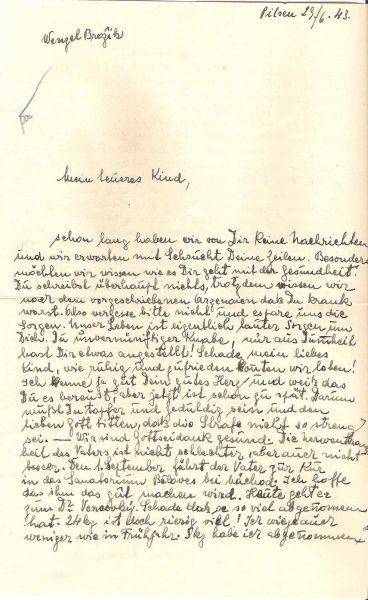 Pilsen 29/6. 43.
Wenzel Brožik
Mein teueres Kind,
schon lang haben wir von Dir keine Nachrichten
und wir erwarten mit Sehsucht Deine Zeilen. Besonders
möchten wir wissen wie es Dir geht mit der Gesundheit.
Du schreibst überhaupt nichts, trotzdem wissen wir
nach dem vorgeschriebenen Arzenaien daß Du krank
warst. Also vergesse bitte nicht und espare uns die
Sorgen. Unser Leben ist eigentlich lauter Sorgen um
Dich! Du unvernünftiger Knabe, nur aus Dumheit
hast Dir etwas angestellt! Schade mein liebes
Kind, wie ruhig und zufrieden konten wir leben!
Ich kenne ja gut Dein gutes Herz/ und weiß das
Du es bereust, aber jetzt ist schon zu spät. Darum
mußt Du tapfer und geduldig sein und den
lieben Gott bitten, daß die Strafe nicht so streng
sei. — Wir sind Gottseidank gesund. Die nervenkrank
heit des Vaters ist nicht schlechter aber auch nicht
besser. Den 1. September fährt der Vater zur Kur
in das Sanatorium Běloves bei Nachod. Ich hoffe
das ihm das gut machen wird. Heute geht er
zum Dr Vencovský. Schade daß er so viel abgenommen
hat. 24 kg ist doch riesig viel! Ich wiege auch
weniger wie in Frühjahr. 8 kg habe ich abgenommen